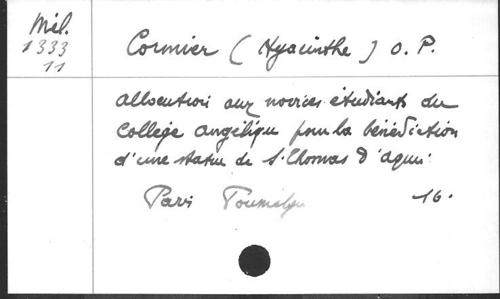 Mél.
1333
11
Cormier (Hyacinthe) O. P.
Allocution aux novices étudiants du
Collège angélique pour la bénédiction
d'une statue de S. Thomas d'Aquin.
Paris 16.